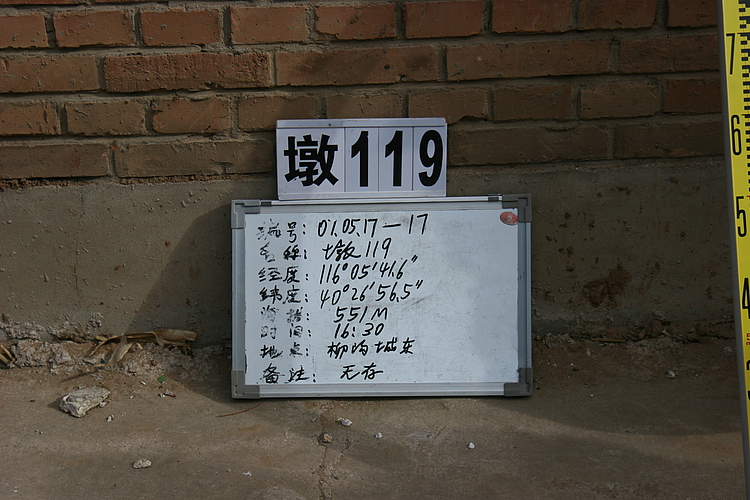 墩119
编号: 07.05.17—17
名称: 墩119
经度: 116°05′41.6″
纬度: 40°26′56.5″
海拔: 551M
时间: 16:30
地点: 柳沟城东
备注: 无存
7
6
5
4